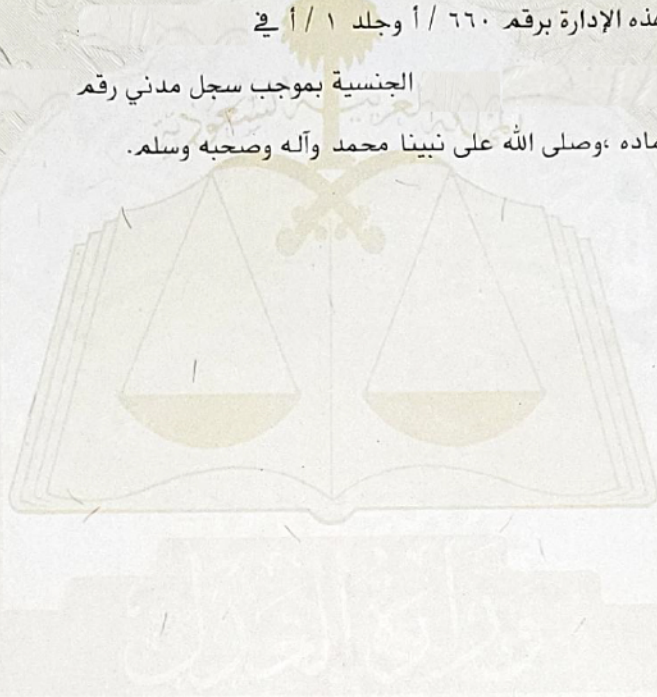 هذه الإدارة برقم ٦٦٠ / أ وجلد ١ / أ في
الجنسية بموجب سجل مدني رقم
ماده ،وصلى الله على نبينا محمد وآله وصحبه وسلم.
وزارة العدل